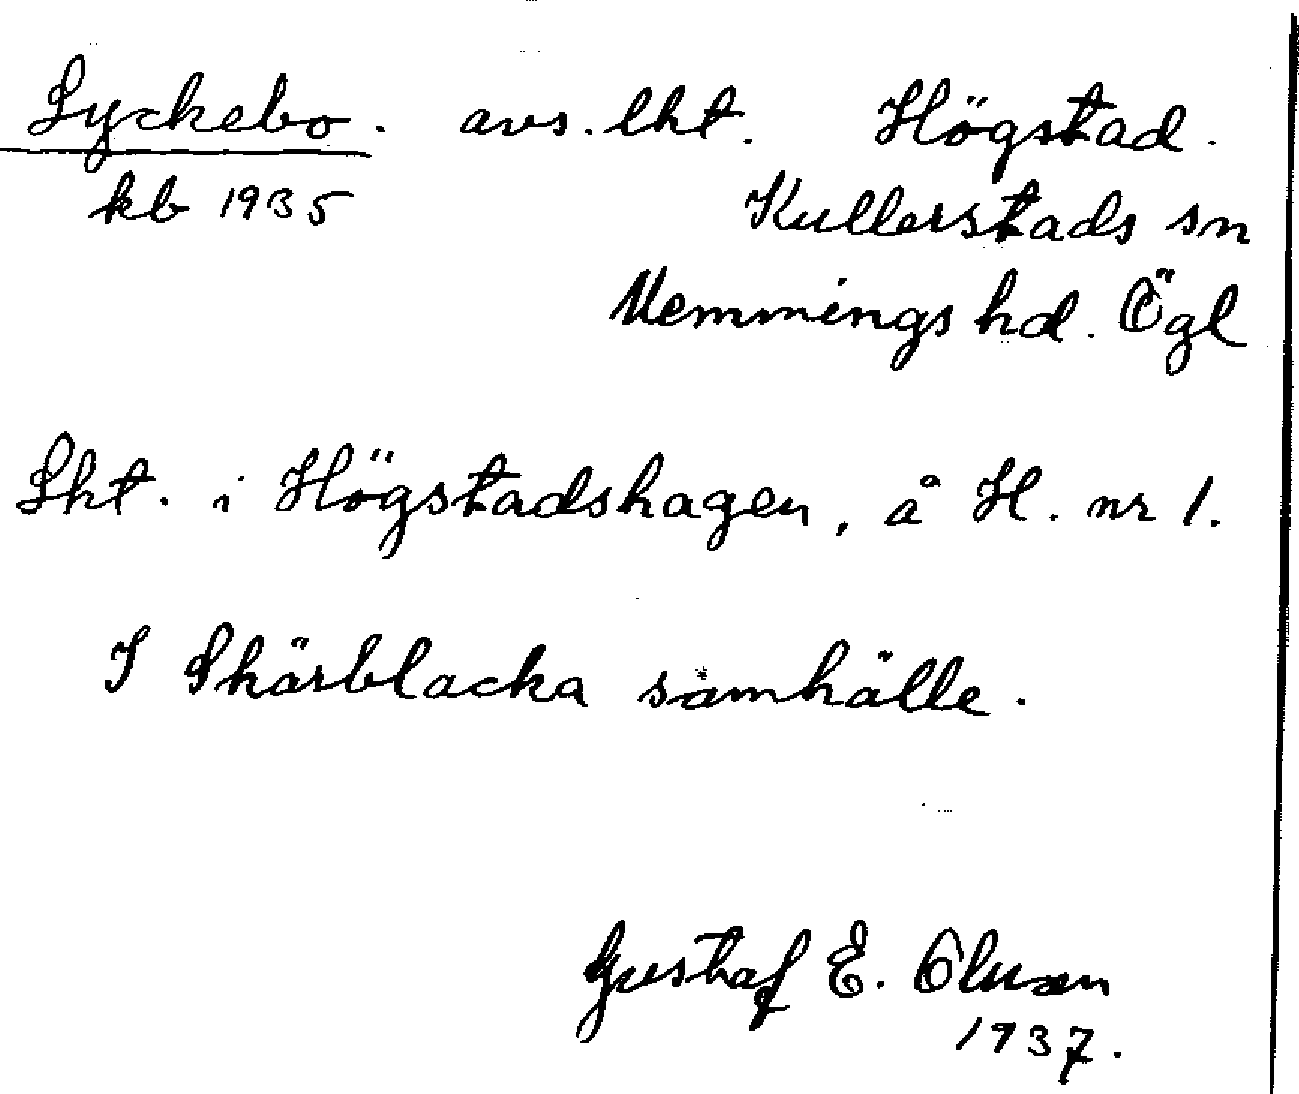 Lyckebo. avs. lht. Högstad.
kb 1935 Kullerstads sn
Memmings hd. Ögl
Lht. i Högstadshagen, å H. nr 1.
I Skärblacka samhälle.
Gustaf E. Olsson
1937.